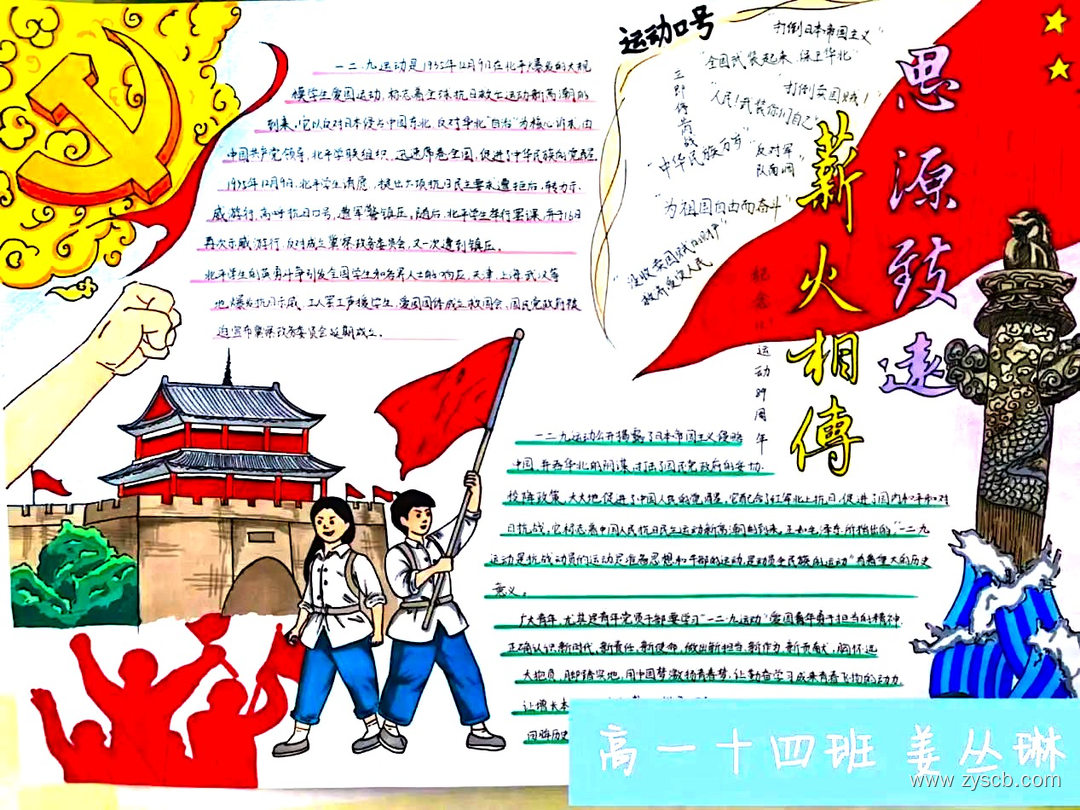 一二·九运动是1935年12月9日在北平爆发的大规
模学生爱国运动,标志着全球抗日救亡运动新高潮的
到来,它以反对日本侵占中国东北,反对华北"自治"为核心诉求,由
中国共产党领导,北平学联组织,迅速席卷全国,促进了中华民族的觉醒.
1935年12月9日,北平学生请愿,提出六项抗日民主要求遭拒后,转为示
威游行,高呼抗日口号,遭军警镇压。随后,北平学生举行罢课,并于16日
再次示威游行,反对成立冀察政务委员会,又一次遭到镇压。
北平学生的英勇斗争引发全国学生和各界人士的响应,天津,上海,武汉等
地爆发抗日示威,工人罢工声援学生,爱国团体成立救国会,国民党政府被
迫宣布冀察政务委员会延期成立。
运动口号
"打倒日本帝国主义"
"全国武装起来 保卫华北"
"打倒卖国贼!"
立即停止内战
"人民!武装你们自己"
"中华民族万岁"
"为祖国自由而奋斗"
思源致遠
薪火相傳
运动89周年
一二九运动公开揭露了日本帝国主义侵略
中国,并吞华北的阴谋,打击了国民党政府的妥协
投降政策,大大地促进了中国人民的觉醒。它配合了红军北上抗日,促进了国内和平和对
日抗战,它标志着中国人民抗日民主运动新高潮的到来。正如毛泽东所指出的"一二九
运动是抗战动员的运动,是准备思想和干部的运动,是动员全民族的运动"有着重大的历史
意义。
广大青年,尤其是青年党员干部要学习"一二九运动"爱国青年勇于担当的精神
正确认识新时代,新责任,新使命,做出新担当,新作为,新贡献,胸怀远
大抱负,脚踏实地,用中国梦激扬青春梦,让勤奋学习成为青春飞扬的动力
让增长本
回眸历史
高一十四班 姜丛琳
www.zyscb.com